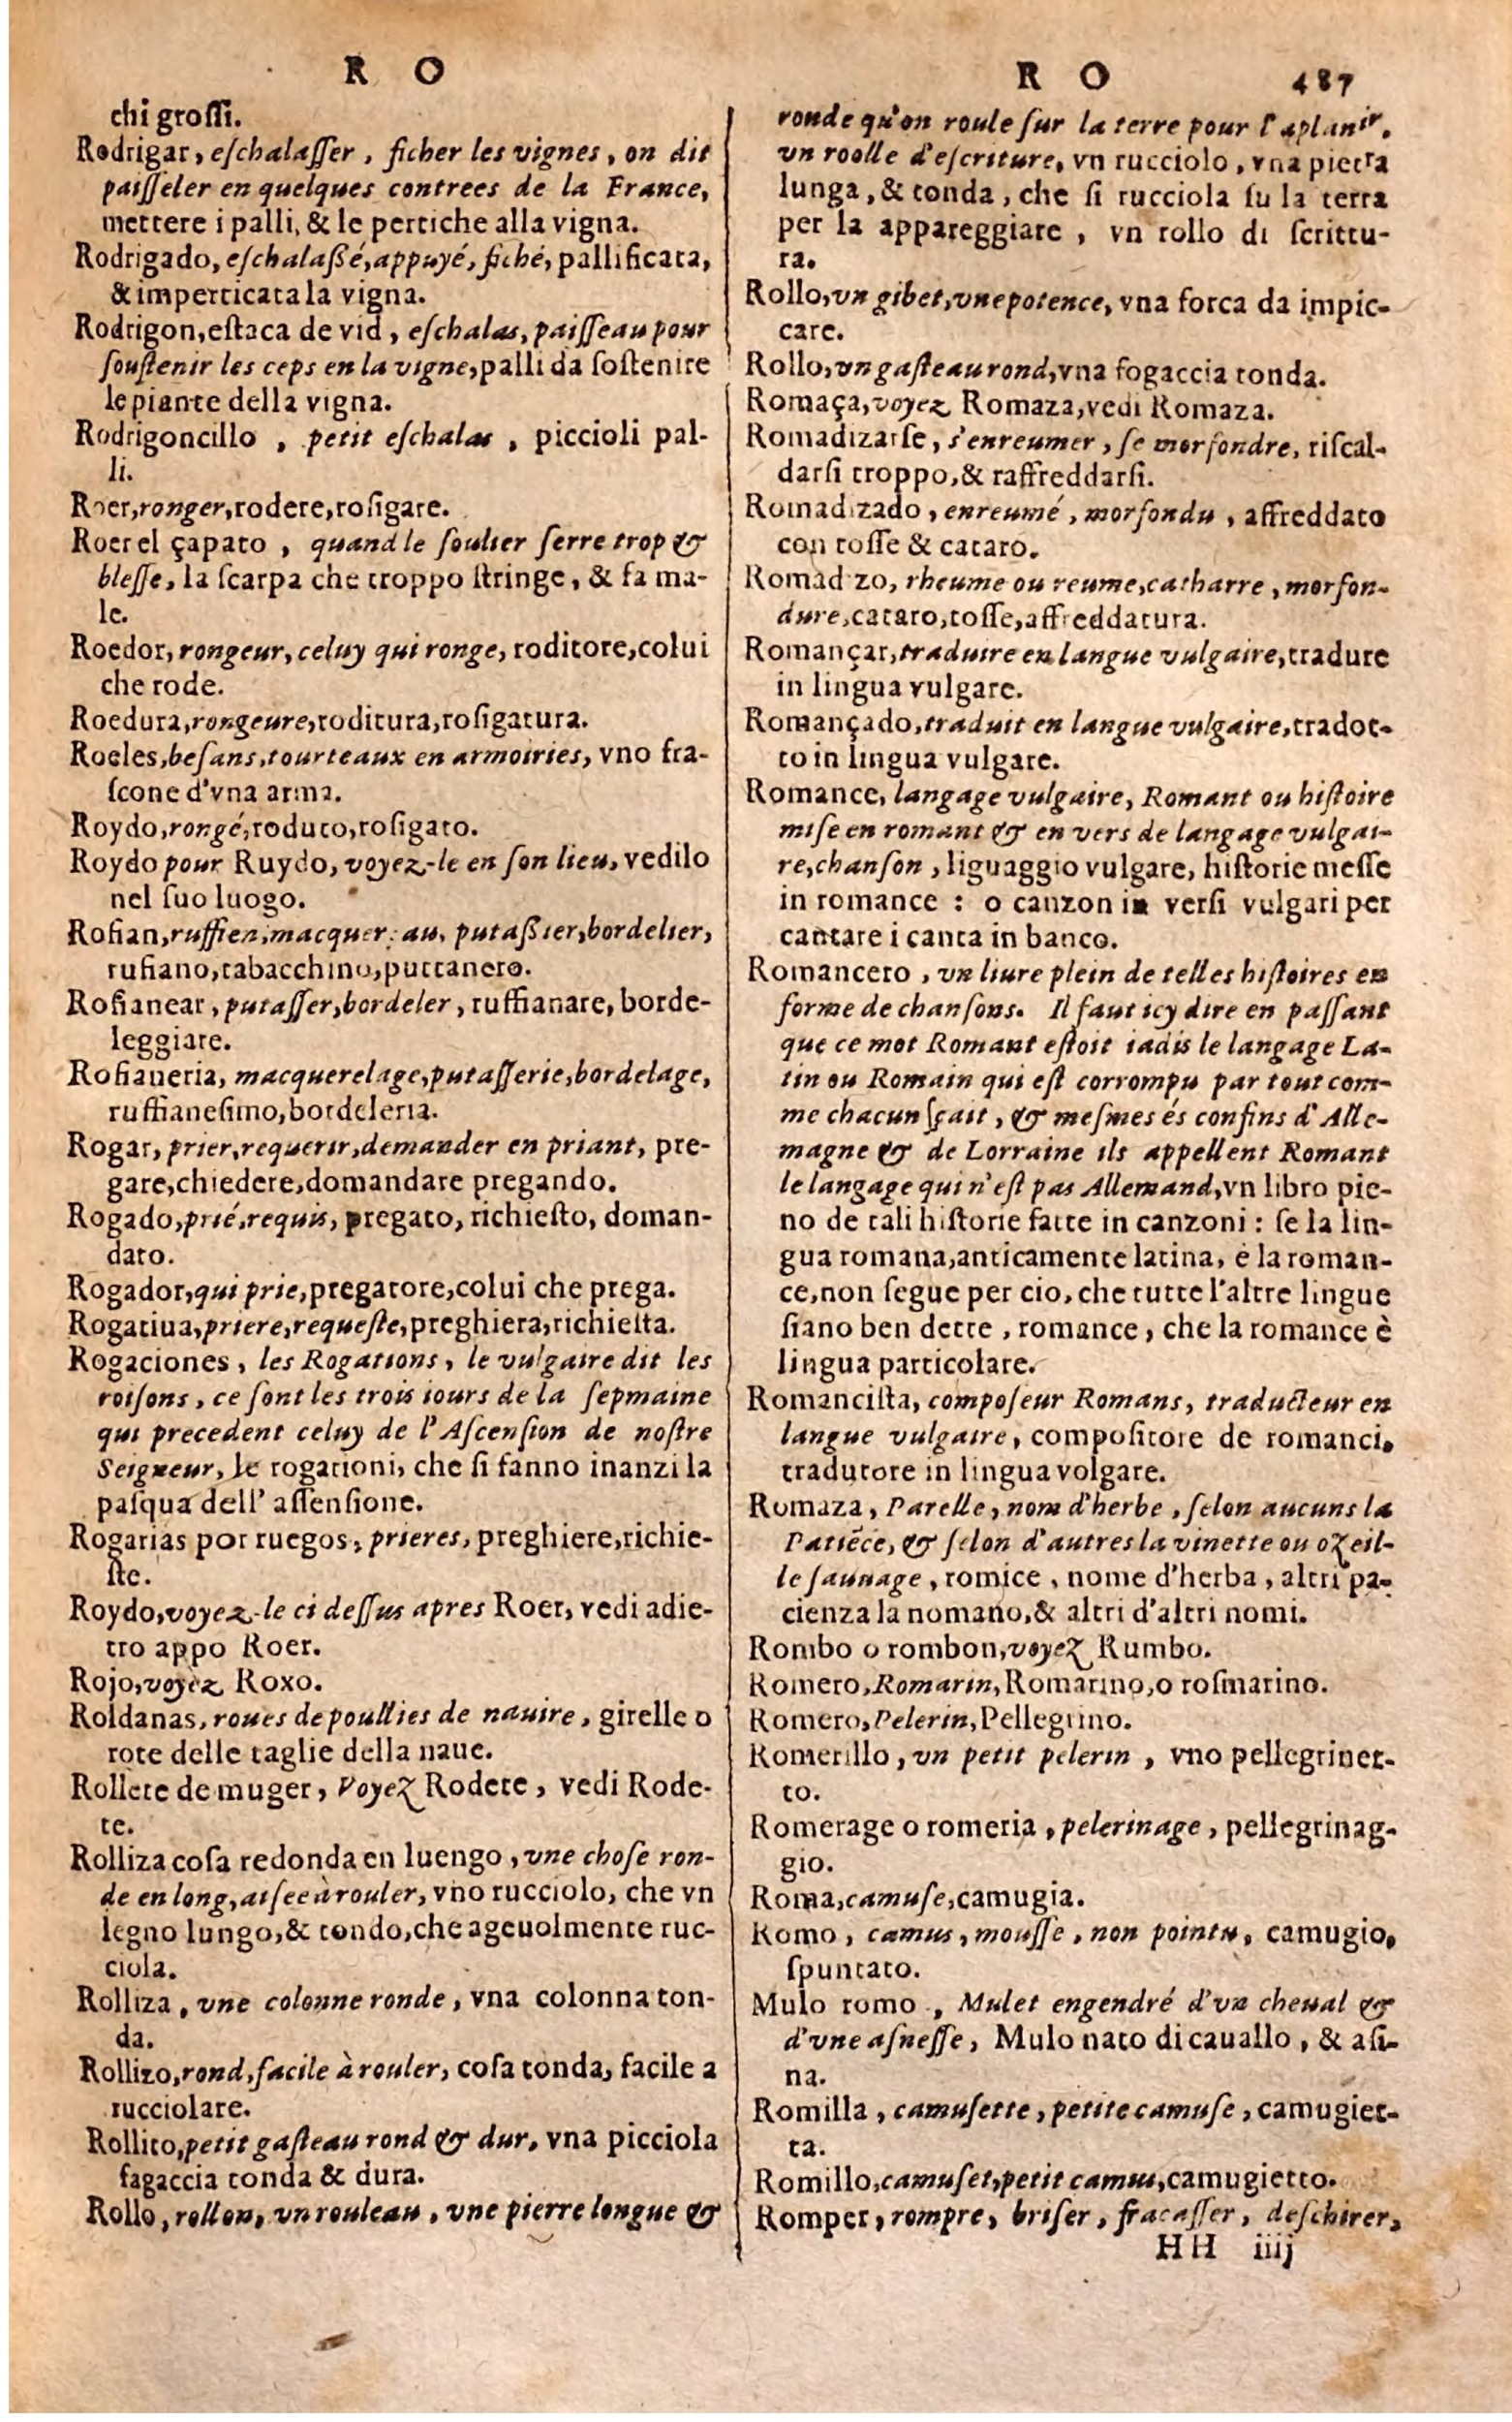 R O
chi groſſi.
Rodrigar, eſchalaſſer, ficher les vignes, on dit
paiſſeler en quelques contrees de la France,
mettere i palli, & le pertiche alla vigna.
Rodrigado, eſchalaßé, appuyé, fiché, pallificata,
& imperticata la vigna.
Rodrigon, eſtaca de vid, eſchalas, paiſſeau pour
ſouſtenir les ceps en la vigne, palli da ſoſtenire
le piante della vigna.
Rodrigoncillo, petit eſchalas, piccioli pal-
li.
Roer, ronger, rodere, roſigare.
Roer el çapato, quand le ſoulier ſerre trop &
bleſſe, la ſcarpa che troppo ſtringe, & fa ma-
le.
Roedor, rongeur, celuy qui ronge, roditore, colui
che rode.
Roedura, rongeure, roditura, roſigatura.
Roeles, beſans, tourteaux en armoiries, vno fra-
ſcone d'vna arma.
Roydo, rongé, roduto, roſigato.
Roydo pour Ruydo, voyez-le en ſon lieu, vedilo
nel ſuo luogo.
Rofian, ruffien, macquereau, putaßier, bordelier,
rufiano, tabacchino, puttanero.
Rofianear, putaſſer, bordeler, ruffianare, borde-
leggiare.
Rofianeria, macquerelage, putaſſerie, bordelage,
ruffianeſimo, bordeleria.
Rogar, prier, requerir, demander en priant, pre-
gare, chiedere, domandare pregando.
Rogado, prié, requis, pregato, richieſto, doman-
dato.
Rogador, qui prie, pregatore, colui che prega.
Rogatiua, priere, requeſte, preghiera, richieſta.
Rogaciones, les Rogations, le vulgaire dit les
roiſons, ce ſont les trois iours de la ſepmaine
qui precedent celuy de l'Aſcenſion de noſtre
Seigneur, le rogationi, che ſi fanno inanzi la
paſqua dell' aſſenſione.
Rogarias por ruegos, prieres, preghiere, richie-
ſte.
Roydo, voyez-le ci deſſus apres Roer, vedi adie-
tro appo Roer.
Rojo, voyez Roxo.
Roldanas, roues de poullies de nauire, girelle o
rote delle taglie della naue.
Rollete de muger, Voyez Rodete, vedi Rode-
te.
Rolliza coſa redonda en luengo, vne choſe ron-
de en long, aiſee à rouler, vno rucciolo, che vn
legno lungo, & tondo, che ageuolmente ruc-
ciola.
Rolliza, vne colonne ronde, vna colonna ton-
da.
Rollizo, rond, facile à rouler, coſa tonda, facile a
rucciolare.
Rollito, petit gaſteau rond & dur, vna picciola
fagaccia tonda & dura.
Rollo, rollon, vn rouleau, vne pierre longue &
R O 487
ronde qu'on roule ſur la terre pour l'aplanir,
vn roolle d'eſcriture, vn rucciolo, vna pietra
lunga, & tonda, che ſi rucciola ſu la terra
per la appareggiare, vn rollo di ſcrittu-
ra.
Rollo, vn gibet, vne potence, vna forca da impic-
care.
Rollo, vn gaſteau rond, vna fogaccia tonda.
Romaça, voyez Romaza, vedi Romaza.
Romadizarſe, s'enreumer, ſe morfondre, riſcal-
darſi troppo, & raffreddarſi.
Romadizado, enreumé, morfondu, affreddato
con toſſe & cataro.
Romadizo, rheume ou reume, catharre, morfon-
dure, cataro, toſſe, affreddatura.
Romançar, traduire en langue vulgaire, tradure
in lingua vulgare.
Romançado, traduit en langue vulgaire, tradot-
to in lingua vulgare.
Romance, langage vulgaire, Romant ou hiſtoire
miſe en romant & en vers de langage vulgai-
re, chanſon, liguaggio vulgare, hiſtorie meſſe
in romance : o canzon in verſi vulgari per
cantare i canta in banco.
Romancero, vn liure plein de telles hiſtoires en
forme de chanſons. Il faut icy dire en paſſant
que ce mot Romant eſtoit iadis le langage La-
tin ou Romain qui eſt corrompu par tout com-
me chacun ſçait, & meſmes és confins d'Alle-
magne & de Lorraine ils appellent Romant
le langage qui n'eſt pas Allemand, vn libro pie-
no de tali hiſtorie fatte in canzoni : ſe la lin-
gua romana, anticamente latina, è la roman-
ce, non ſegue per cio, che tutte l'altre lingue
ſiano ben dette, romance, che la romance è
lingua particolare.
Romanciſta, compoſeur Romans, traducteur en
langue vulgaire, compoſitore de romanci,
tradutore in lingua volgare.
Romaza, Parelle, nom d'herbe, ſelon aucuns la
Patiẽce, & ſelon d'autres la vinette ou ozeil-
le ſauuage, romice, nome d'herba, altri pa-
cienza la nomano, & altri d'altri nomi.
Rombo o rombon, voyez Rumbo.
Romero, Romarin, Romarino, o roſmarino.
Romero, Pelerin, Pellegrino.
Romerillo, vn petit pelerin, vno pellegrinet-
to.
Romerage o romeria, pelerinage, pellegrinag-
gio.
Roma, camuſe, camugia.
Romo, camus, mouſſe, non pointu, camugio,
ſpuntato.
Mulo romo, Mulet engendré d'vn cheual &
d'vne aſneſſe, Mulo nato di cauallo, & aſi-
na.
Romilla, camuſette, petite camuſe, camugiet-
ta.
Romillo, camuſet, petit camus, camugietto.
Romper, rompre, briſer, fracaſſer, deſchirer,
HH iiij